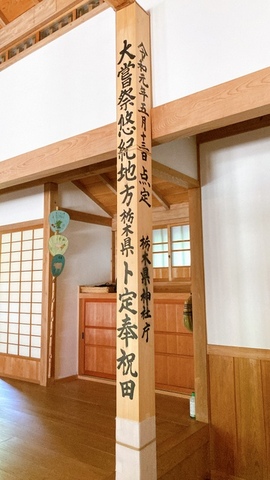 令和元年五月十三日点定
大嘗祭悠紀地方栃木県卜定奉祝田
栃木県神社庁